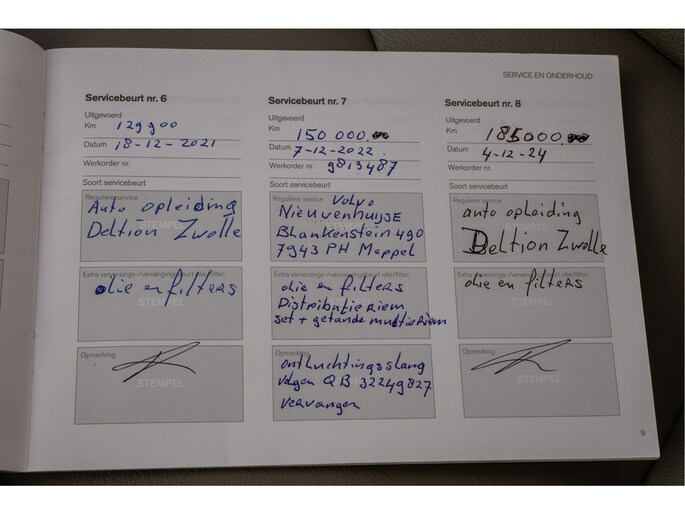 SERVICE EN ONDERHOUD
Servicebeurt nr. 6
Uitgevoerd
Km 129900
Datum 18-12-2021
Werkorder nr.
Soort servicebeurt
Reguliere service
Auto opleiding
Deltion Zwolle
STEMPEL
Extra verversings-/vervangingsbeurt olie/filter:
olie en filters
STEMPEL
Opmerking
STEMPEL
Servicebeurt nr. 7
Uitgevoerd
Km 150 000
Datum 7-12-2022
Werkorder nr. 9813487
Soort servicebeurt
Reguliere service
Volvo
Nieuwenhuijse
Blankenstein 490
7943 PH Meppel
Extra verversings-/vervangingsbeurt olie/filter:
olie en filters
Distributie Riem
set + getande multi Riem
Opmerking
ontluchtingsslang
volgen QB 32249827
vervangen
Servicebeurt nr. 8
Uitgevoerd
Km 185000
Datum 4-12-24
Werkorder nr.
Soort servicebeurt
Reguliere service
auto opleiding
Deltion Zwolle
STEMPEL
Extra verversings-/vervangingsbeurt olie/filter:
olie en filters
STEMPEL
Opmerking
STEMPEL
9